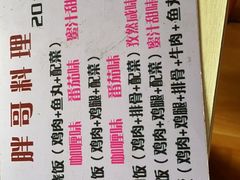 胖哥料理 20
饭（鸡肉+鱼丸+配菜）
咖喱味 番茄味 蜜汁甜味
饭（鸡肉+鸡腿+配菜）
咖喱味 番茄味 孜然咸味
饭（鸡肉+排骨+配菜）
咖喱味 番茄味 蜜汁甜味
饭（鸡肉+鸡腿+排骨+牛肉+鱼丸